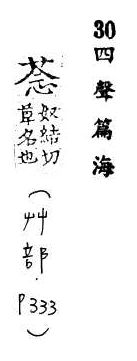 30四聲篇海
菍奴結切
草名也
(艸部.P333)